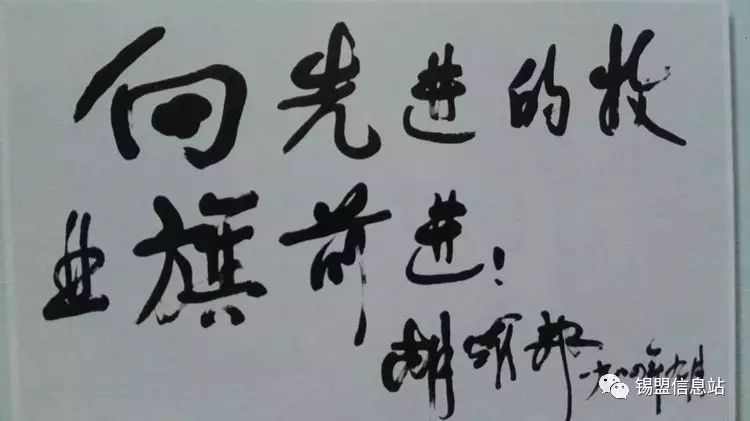 向先进的牧
业旗前进！
胡耀邦 一九八四年九月
锡盟信息站